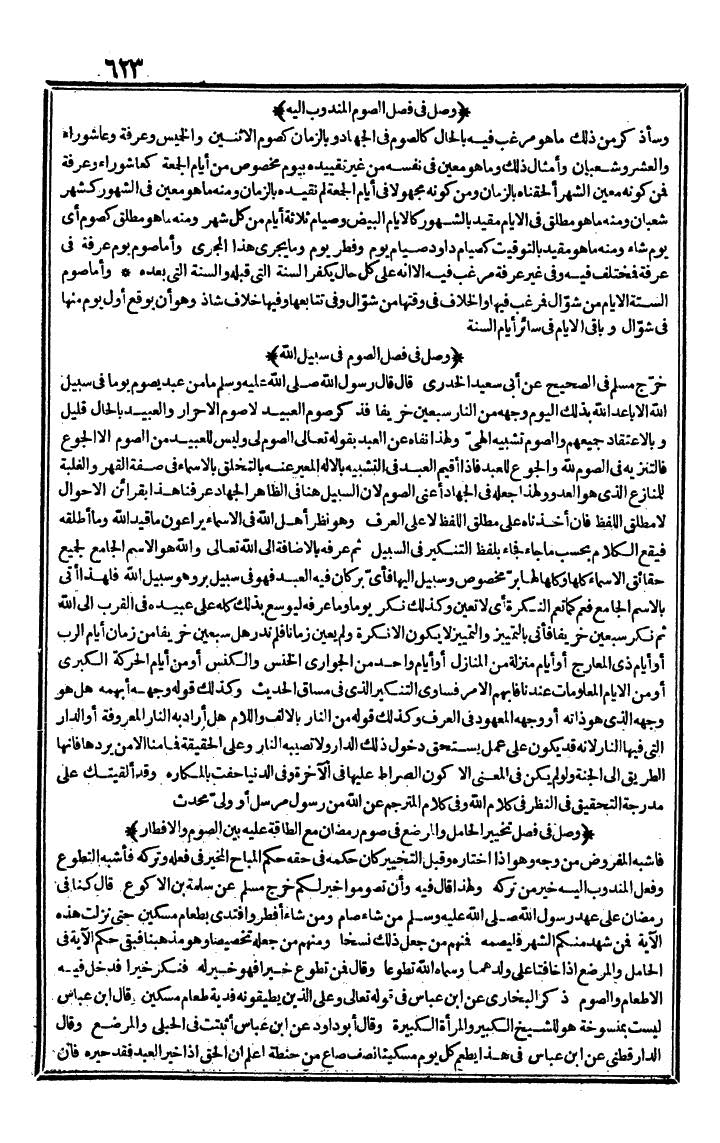 ٦٢٣
﴿وصل فى فصل الصوم المندوب اليه﴾
وسأذكر من ذلك ماهو مرغب فيه بالحال كالصوم فى الجهاد وبالزمان كصوم الاثنين والخيس وعرفة وعاشوراء
والعشر وشعبان وأمثال ذلك وماهو معين فى نفسه من غير تقييده بيوم مخصوص من أيام الجعة كعاشوراء وعرفة
فمن كونه معين الشهر ألحقناه بالزمان ومن كونه مجهولا فى أيام الجعة لم نقيده بالزمان ومنه ماهو معين فى الشهور كشهر
شعبان ومنه ماهو مطلق فى الايام مقيد بالشهور كالايام البيض وصيام ثلاثة أيام من كل شهر ومنه ماهو مطلق كصوم أى
يوم شاء ومنه ماهو مقيد بالتوقيت كصيام داود صيام يوم وفطر يوم ومايجرى هذا المجرى وأما صوم يوم عرفة فى
عرفة فمختلف فيه وفى غير عرفة مرغب فيه الا انه على كل حال يكفر السنة التى قبله والسنة التى بعده * وأما صوم
الستة الايام من شوّال فرغب فيها والخلاف فى وقتها من شوّال وفى تتابعها وفيها خلاف شاذ وهو أن يوقع أول يوم منها
فى شوّال و باقى الايام فى سائر أيام السنة
﴿وصل فى فصل الصوم فى سبيل الله﴾
خرّج مسلم فى الصحيح عن أبى سعيد الخدرى قال قال رسول الله صلى الله عليه وسلم مامن عبد يصوم يوما فى سبيل
الله الا باعد الله بذلك اليوم وجهه من النار سبعين خريفا فذكر صوم العبيد لا صوم الاحرار والعبيد بالحال قليل
و بالاعتقاد جيعهم والصوم تشبيه الهىّ ولهذا نفاه عن العبد بقوله تعالى الصوم لى وليس للعبيد من الصوم الا الجوع
فالتنزيه فى الصوم لله والجوع للعبد فاذا أقيم العبد فى التشبيه بالاله المعبر عنه بالتخلق بالاسماء فى صفة القهر والغلبة
للمنازع الذى هو العدو ولهذا جعله فى الجهاد أعنى الصوم لان السبيل هنا فى الظاهر الجهاد عرفنا هذا بقرائن الاحوال
لا مطلق اللفظ فان أخذناه على مطلق اللفظ لا على العرف وهو نظر أهل الله فى الاسماء يراعون ماقيد الله وما أطلقه
فيقع الكلام بحسب ماجاء فجاء بلفظ التنكير فى السبيل ثم عرفه بالاضافة الى الله تعالى والله هو الاسم الجامع لجيع
حقائق الاسماء كلها وكلها لها برّ مخصوص وسبيل اليها فأىّ بر كان فيه العبد فهو فى سبيل بر وهو سبيل الله فلهذا أتى
بالاسم الجامع فعم كما تعم النكرة أى لا تعين وكذلك نكر يوما وما عرفه ليوسع بذلك كله على عبيده فى القرب الى الله
ثم نكر سبعين خريفا فأتى بالتمييز والتمييز لا يكون الا نكرة ولم يعين زمانا فلم ندر هل سبعين خريفا من زمان أيام الرب
أو أيام ذى المعارج أو أيام منزلة من المنازل أو أيام واحد من الجوارى الخنس والكنس أو من أيام الحركة الكبرى
أو من الايام المعلومات عندنا فابهم الامر فساوى التنكير الذى فى مساق الحديث وكذلك قوله وجهه أبهمه هل هو
وجهه الذى هو ذاته أو وجهه المعهود فى العرف وكذلك قوله من النار بالالف واللام هل أراد به النار المعروفة أو الدار
التى فيها النار لانه قد يكون على عمل يستحق دخول ذلك الدار ولا تصيبه النار وعلى الحقيقة فامنا الا من يردها فانها
الطريق الى الجنة ولو لم يكن فى المعنى الا كون الصراط عليها فى الآخرة وفى الدنيا حفت بالمكاره وقد ألقيتك على
مدرجة التحقيق فى النظر فى كلام الله وفى كلام المترجم عن الله من رسول مرسل أو ولىّ محدث
﴿وصل فى فصل تخيير الحامل والمرضع فى صوم رمضان مع الطاقة عليه بين الصوم والافطار﴾
فاشبه المفروض من وجه وهو اذا اختاره وقبل التخيير كان حكمه فى حقه حكم المباح المخير فى فعله وتركه فأشبه التطوع
وفعل المندوب اليه خير من تركه ولهذا قال فيه وأن تصوموا خير لكم خرج مسلم عن سلمة بن الاكوع قال كنا فى
رمضان على عهد رسول الله صلى الله عليه وسلم من شاء صام ومن شاء أفطر وافتدى بطعام مسكين حتى نزلت هذه
الآية فمن شهد منكم الشهر فليصمه فنهم من جعل ذلك نسخا ومنهم من جعله تخصيصا وهو مذهبنا فبقى حكم الآية فى
الحامل والمرضع اذا خافتا على ولدهما وسماه الله تطوعا وقال فمن تطوع خيرا فهو خير له فنكر خيرا فدخل فيه
الاطعام والصوم ذكر البخارى عن ابن عباس فى قوله تعالى وعلى الذين يطيقونه فدية طعام مسكين قال ابن عباس
ليست بمنسوخة هو للشيخ الكبير والمرأة الكبيرة وقال أبو داود عن ابن عباس أثبتت فى الحبلى والمرضع وقال
الدارقطنى عن ابن عباس فى هذا يطعم كل يوم مسكينا نصف صاع من حنطة اعلم ان الحق اذا خير العبد فقد حيره فان